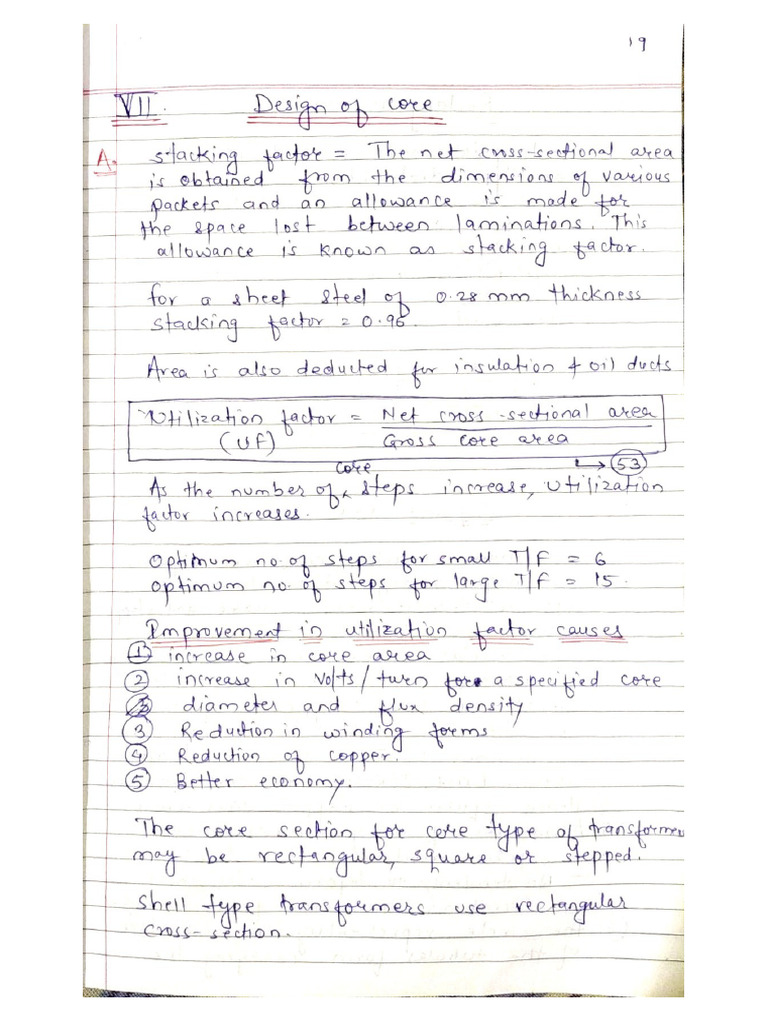 19
VII. Design of core
A. stacking factor = The net cross-sectional area
is obtained from the dimensions of various
packets and an allowance is made for
the space lost between laminations. This
allowance is known as stacking factor.
for a sheet steel of 0.28 mm thickness
stacking factor = 0.96.
Area is also deducted for insulation & oil ducts
Utilization factor = Net cross-sectional area
(UF) Gross core area
core → 53
As the number of steps increase, utilization
factor increases.
Optimum no. of steps for small T/F = 6
optimum no. of steps for large T/F = 15.
Improvement in utilization factor causes
1 increase in core area
2 increase in volts/turn for a specified core
diameter and flux density
3 Reduction in winding forms
4 Reduction of copper.
5 Better economy.
The core section for core type of transformer
may be rectangular, square or stepped.
Shell type transformers use rectangular
cross-section.